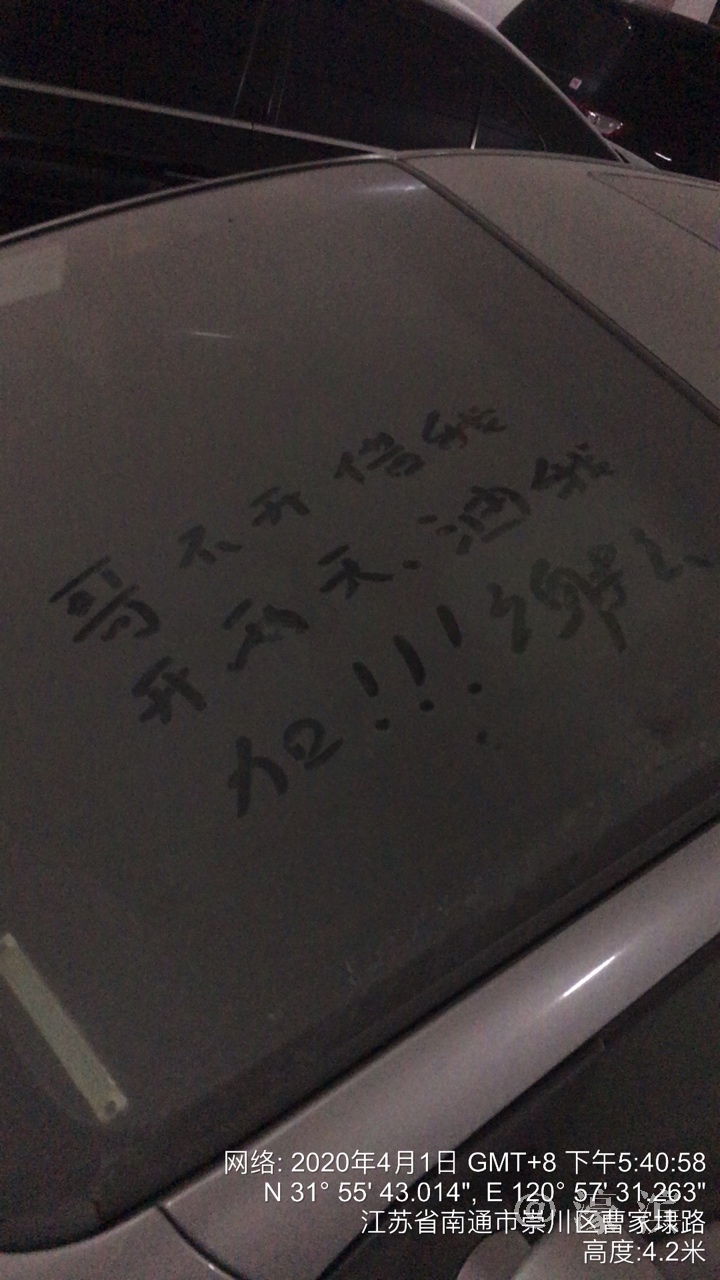 哥不开借给
开两天、油给
加!!!谢谢
网络: 2020年4月1日 GMT+8 下午5:40:58
N 31° 55' 43.014", E 120° 57' 31.263"
江苏省南通市崇川区曹家埭路
高度:4.2米